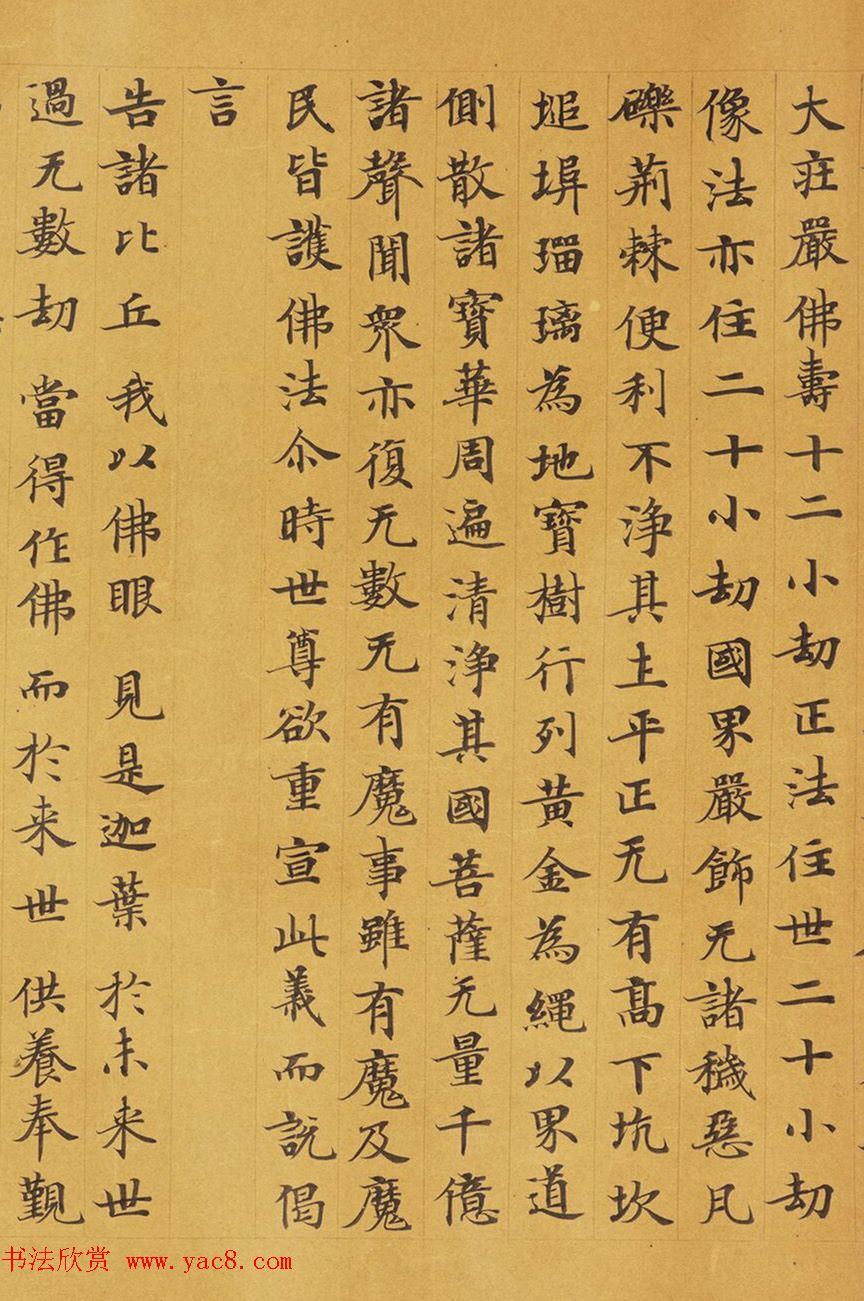 大莊嚴佛壽十二小劫正法住世二十小劫
像法亦住二十小劫國界嚴飾无諸穢惡凡
礫荊棘便利不淨其土平正无有高下坑坎
塠埠瑠璃為地寶樹行列黃金為繩以界道
側散諸寶華周遍清淨其國菩薩无量千億
諸聲聞眾亦復无數无有魔事雖有魔及魔
民皆護佛法尒時世尊欲重宣此義而說偈
言
告諸比丘 我以佛眼 見是迦葉 於未来世
過无數劫 當得作佛 而於来世 供養奉覲
书法欣赏 www.yac8.com